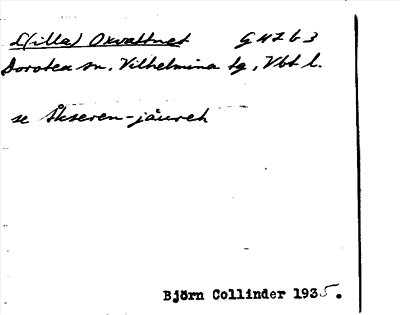 L(illa) Oxvattnet G HZ b 3
Dorotea sn, Vilhelmina tg, Vbt l.
se Åkseren-jäureh
Björn Collinder 1935.